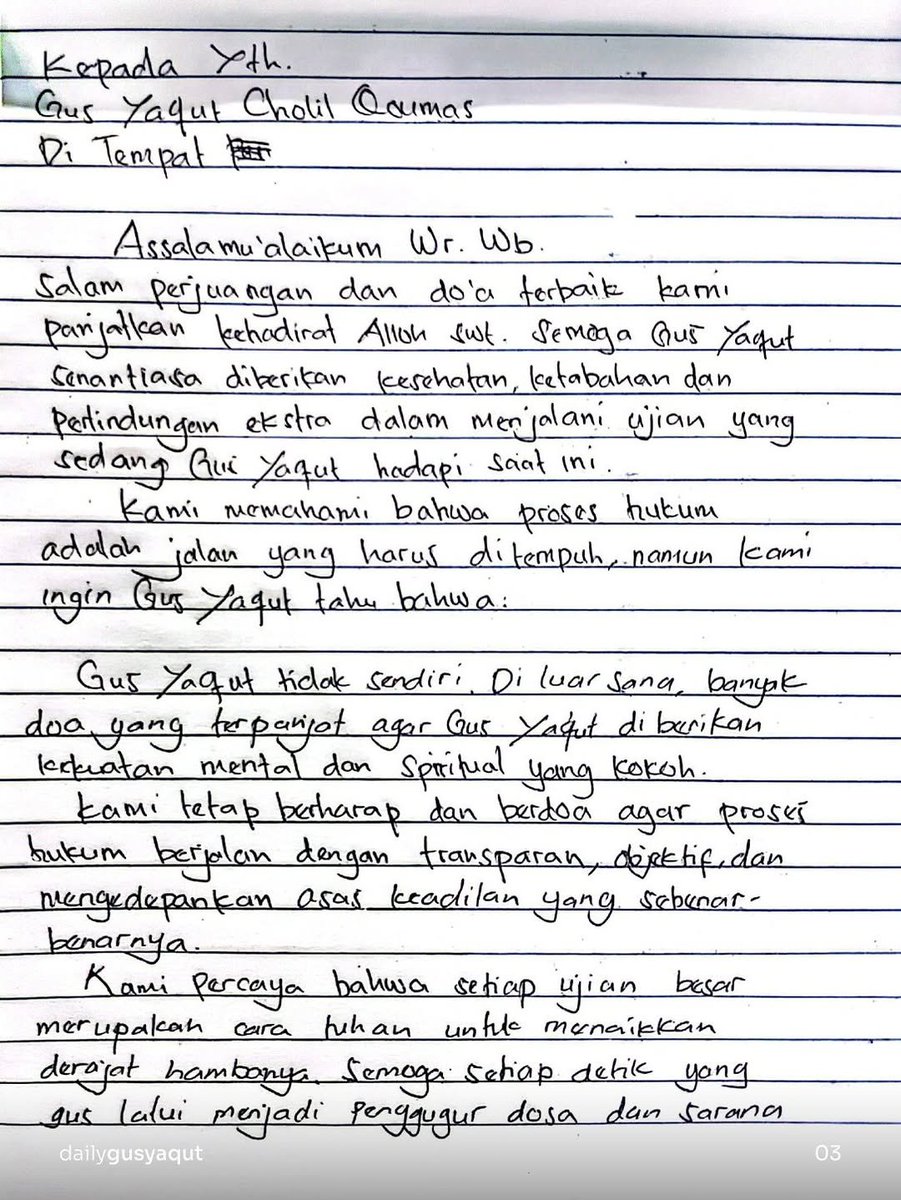 Kepada Yth.
Gus Yaqut Cholil Qoumas
Di Tempat
Assalamu'alaikum Wr. Wb.
Salam perjuangan dan do'a terbaik kami
panjatkan kehadirat Alloh swt. Semoga Gus Yaqut
senantiasa diberikan kesehatan, ketabahan dan
perlindungan ekstra dalam menjalani ujian yang
sedang Gus Yaqut hadapi saat ini.
Kami memahami bahwa proses hukum
adalah jalan yang harus ditempuh, namun kami
ingin Gus Yaqut tahu bahwa:
Gus Yaqut tidak sendiri. Di luar sana, banyak
doa yang terpanjat agar Gus Yaqut diberikan
kekuatan mental dan spiritual yang kokoh.
Kami tetap berharap dan berdoa agar proses
hukum berjalan dengan transparan, objektif, dan
mengedepankan asas keadilan yang sebenar-
benarnya.
Kami percaya bahwa setiap ujian besar
merupakan cara tuhan untuk menaikkan
derajat hambanya. Semoga setiap detik yang
gus lalui menjadi penggugur dosa dan sarana
dailygusyaqut
03